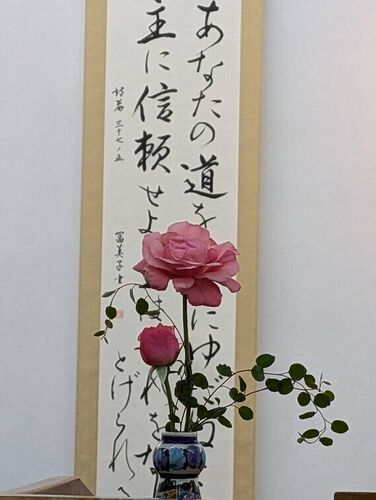 あなたの道を にゆだ
主に信頼せよ はそれをな
とげられ
詩篇 三十七ノ五
冨美子書